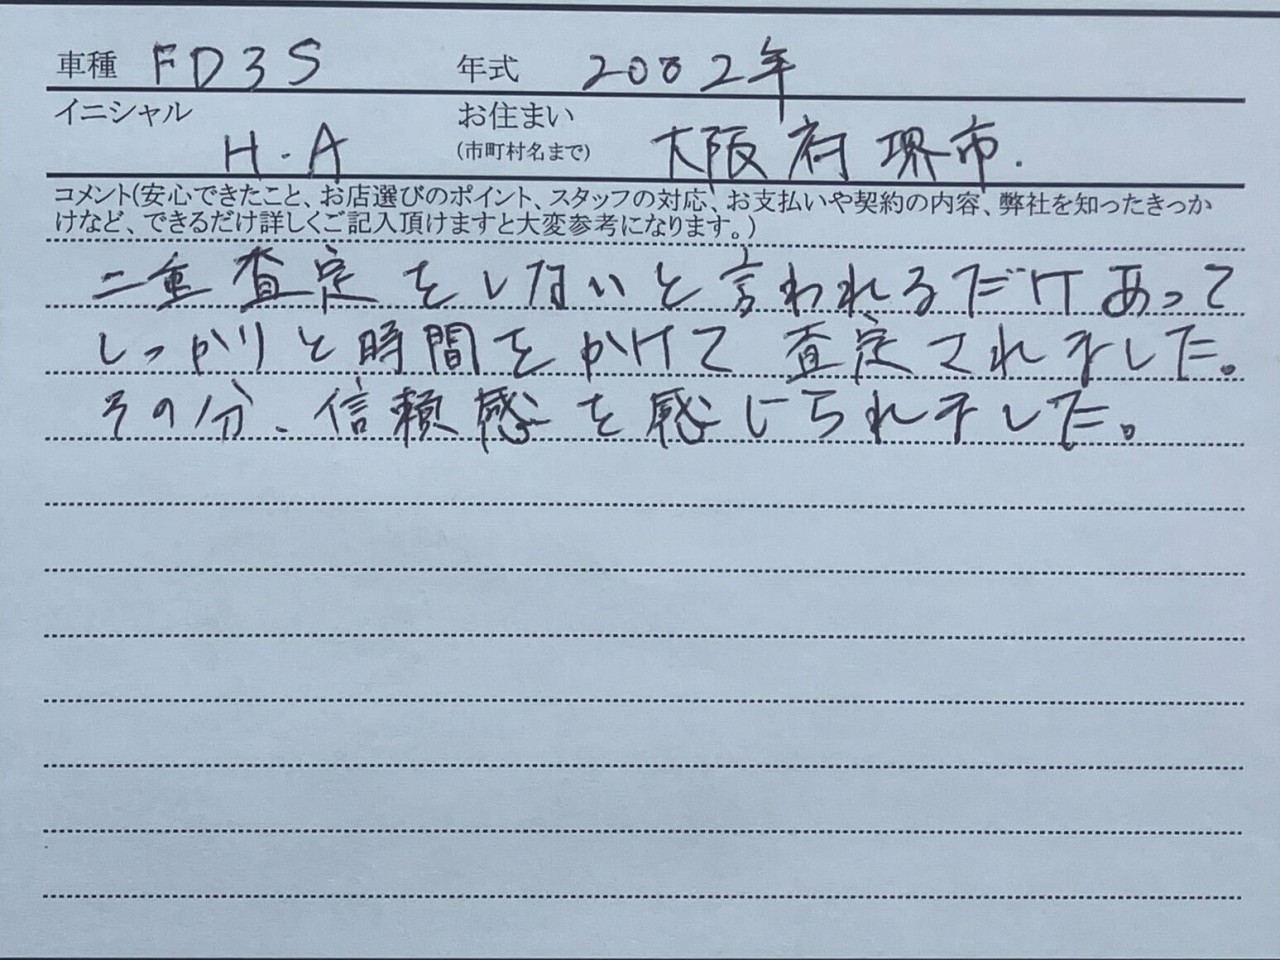 車種 FD3S 年式 2002年
イニシャル H.A お住まい(市町村名まで) 大阪府堺市.
コメント(安心できたこと、お店選びのポイント、スタッフの対応、お支払いや契約の内容、弊社を知ったきっか
けなど、できるだけ詳しくご記入頂けますと大変参考になります。)
二重査定をしないと言われるだけあって
しっかりと時間をかけて査定されました。
その分、信頼感を感じられました。